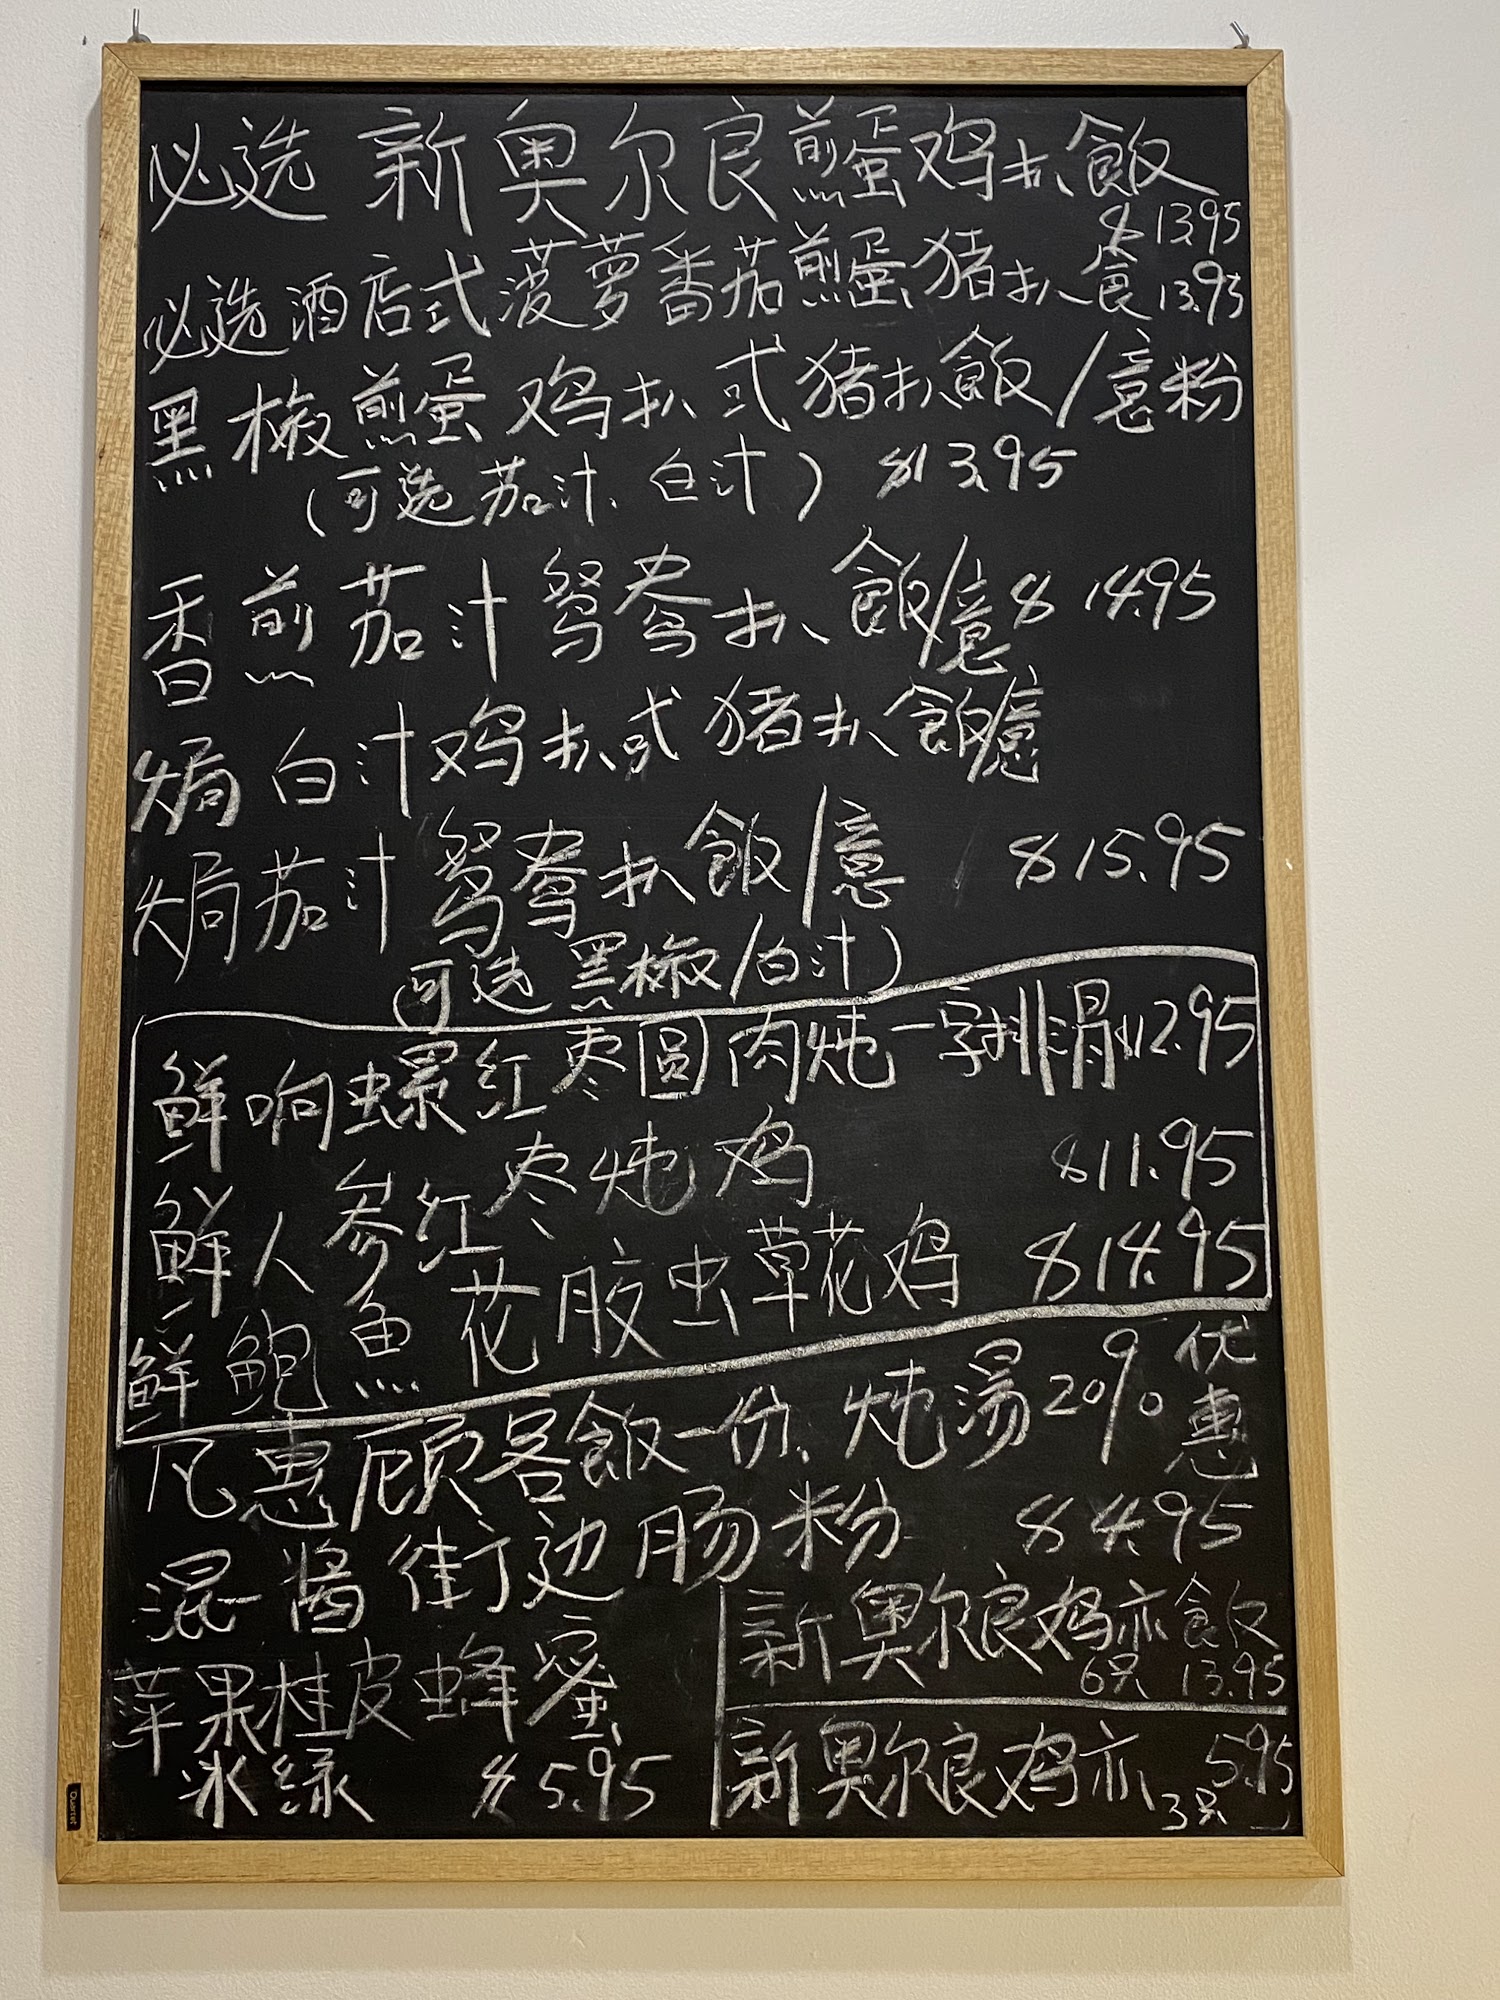 必选 新奥尔良煎蛋鸡扒飯
$13.95
必选酒店式菠萝番茄煎蛋猪扒食 13.95
黑椒煎蛋鸡扒式猪扒飯/意粉
(可选茄汁、白汁) $13.95
香煎茄汁鸳鸯扒飯/意 $14.95
焗白汁鸡扒式猪扒飯/意
焗茄汁鸳鸯扒飯/意 $15.95
(可选黑椒/白汁)
鲜响螺红枣圆肉炖一字排骨$12.95
鲜人参红枣炖鸡 $11.95
鲜鲍魚花胶虫草花鸡 $14.95
凡惠顾客飯一份、炖湯20%优惠
混醬街边肠粉 $4.95
苹果桂皮蜂蜜
冰绿 $5.95
新奥尔良鸡亦飯
6只 13.95
新奥尔良鸡亦 5.95
3只
Quartet